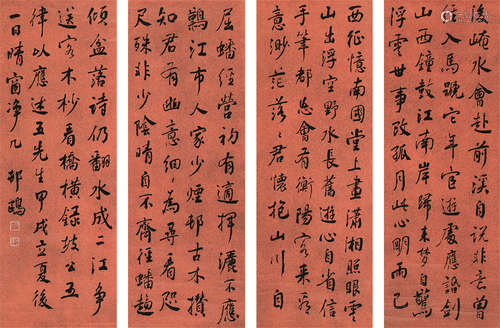 後崦水會赴前溪自說非意曾
入馬蹄它年宦遊處應話劍
山西鐘鼓江南岸歸來夢自驚
浮雲世事改孤月此心明而已
西征憶南國堂上畫瀟湘照眼雲
山出浮空野水長舊遊心自省信
手筆都忘會有衡陽客來看
意渺茫落落君懷抱山川自
屈蟠經營初有適揮灑不應
難江市人家少煙邨古木攢
知君有幽意細細為尋看咫
尺殊非少陰晴自不齊徑蟠趨
傾盆落詩仍翻水成二江爭
送客木杪看橋橫錄坡公五
律以應述五先生甲戌立夏後
一日晴窗淨几邨鷗